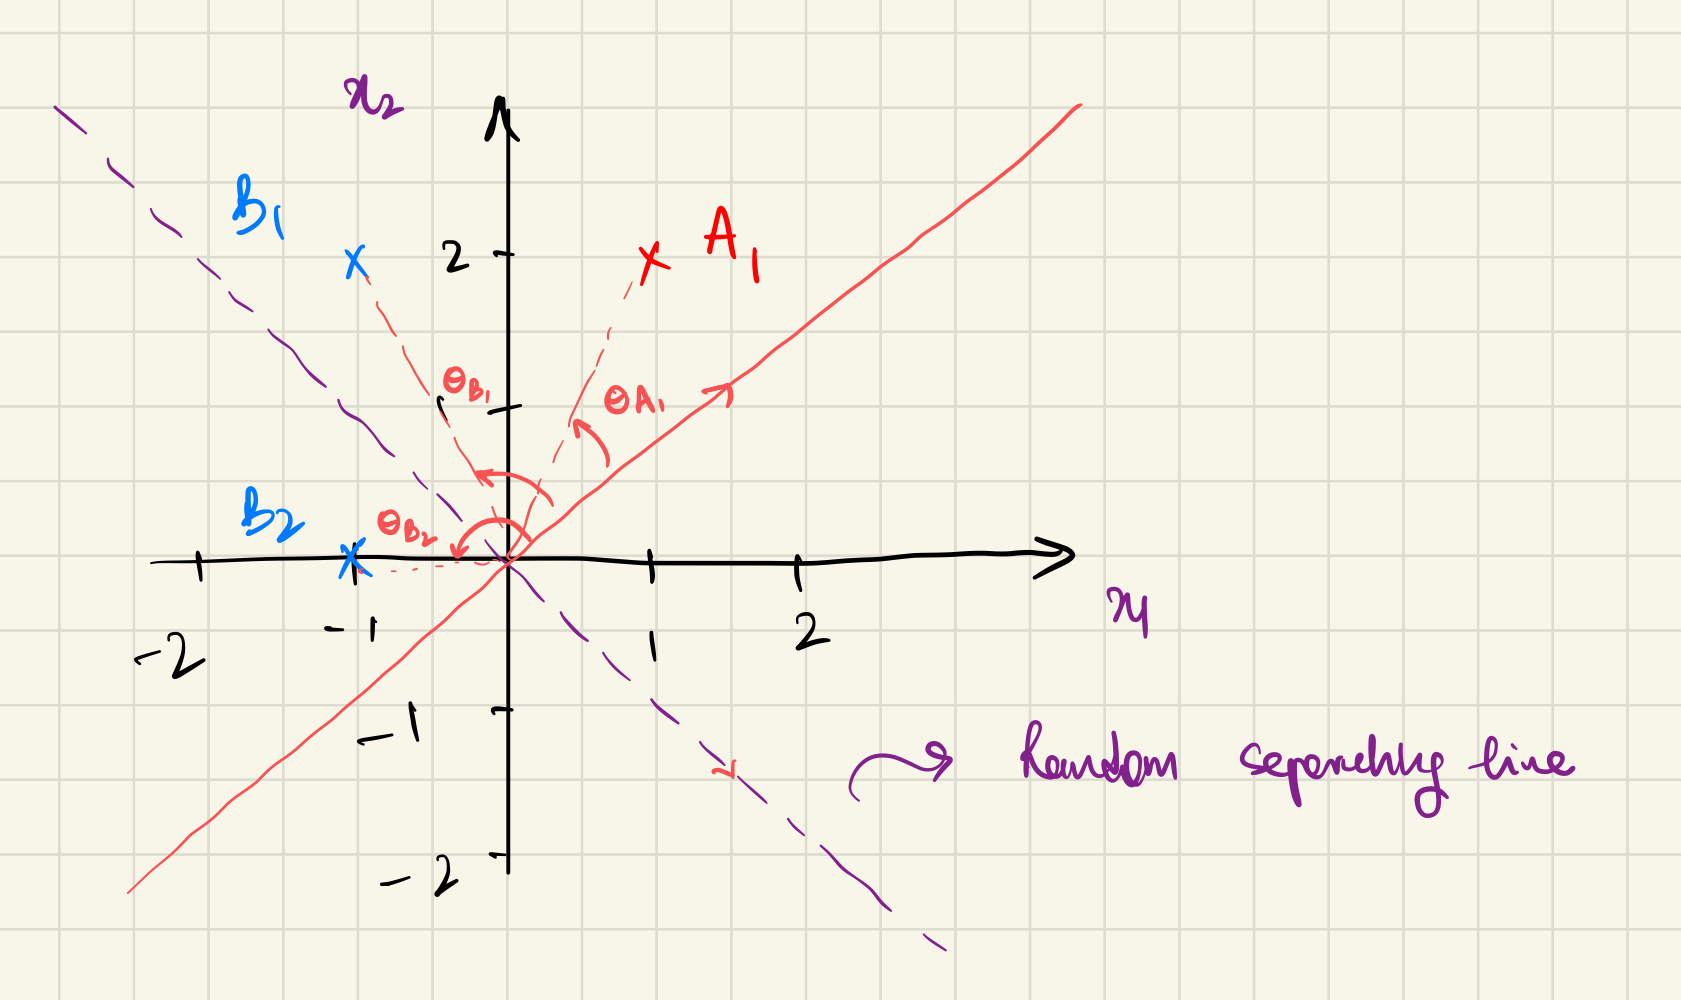 x₂
B₁
2
A₁
θ_B₁
θA₁
B₂
θ_B₂
-2
-1
1
2
x₁
-1
Random separating line
-2